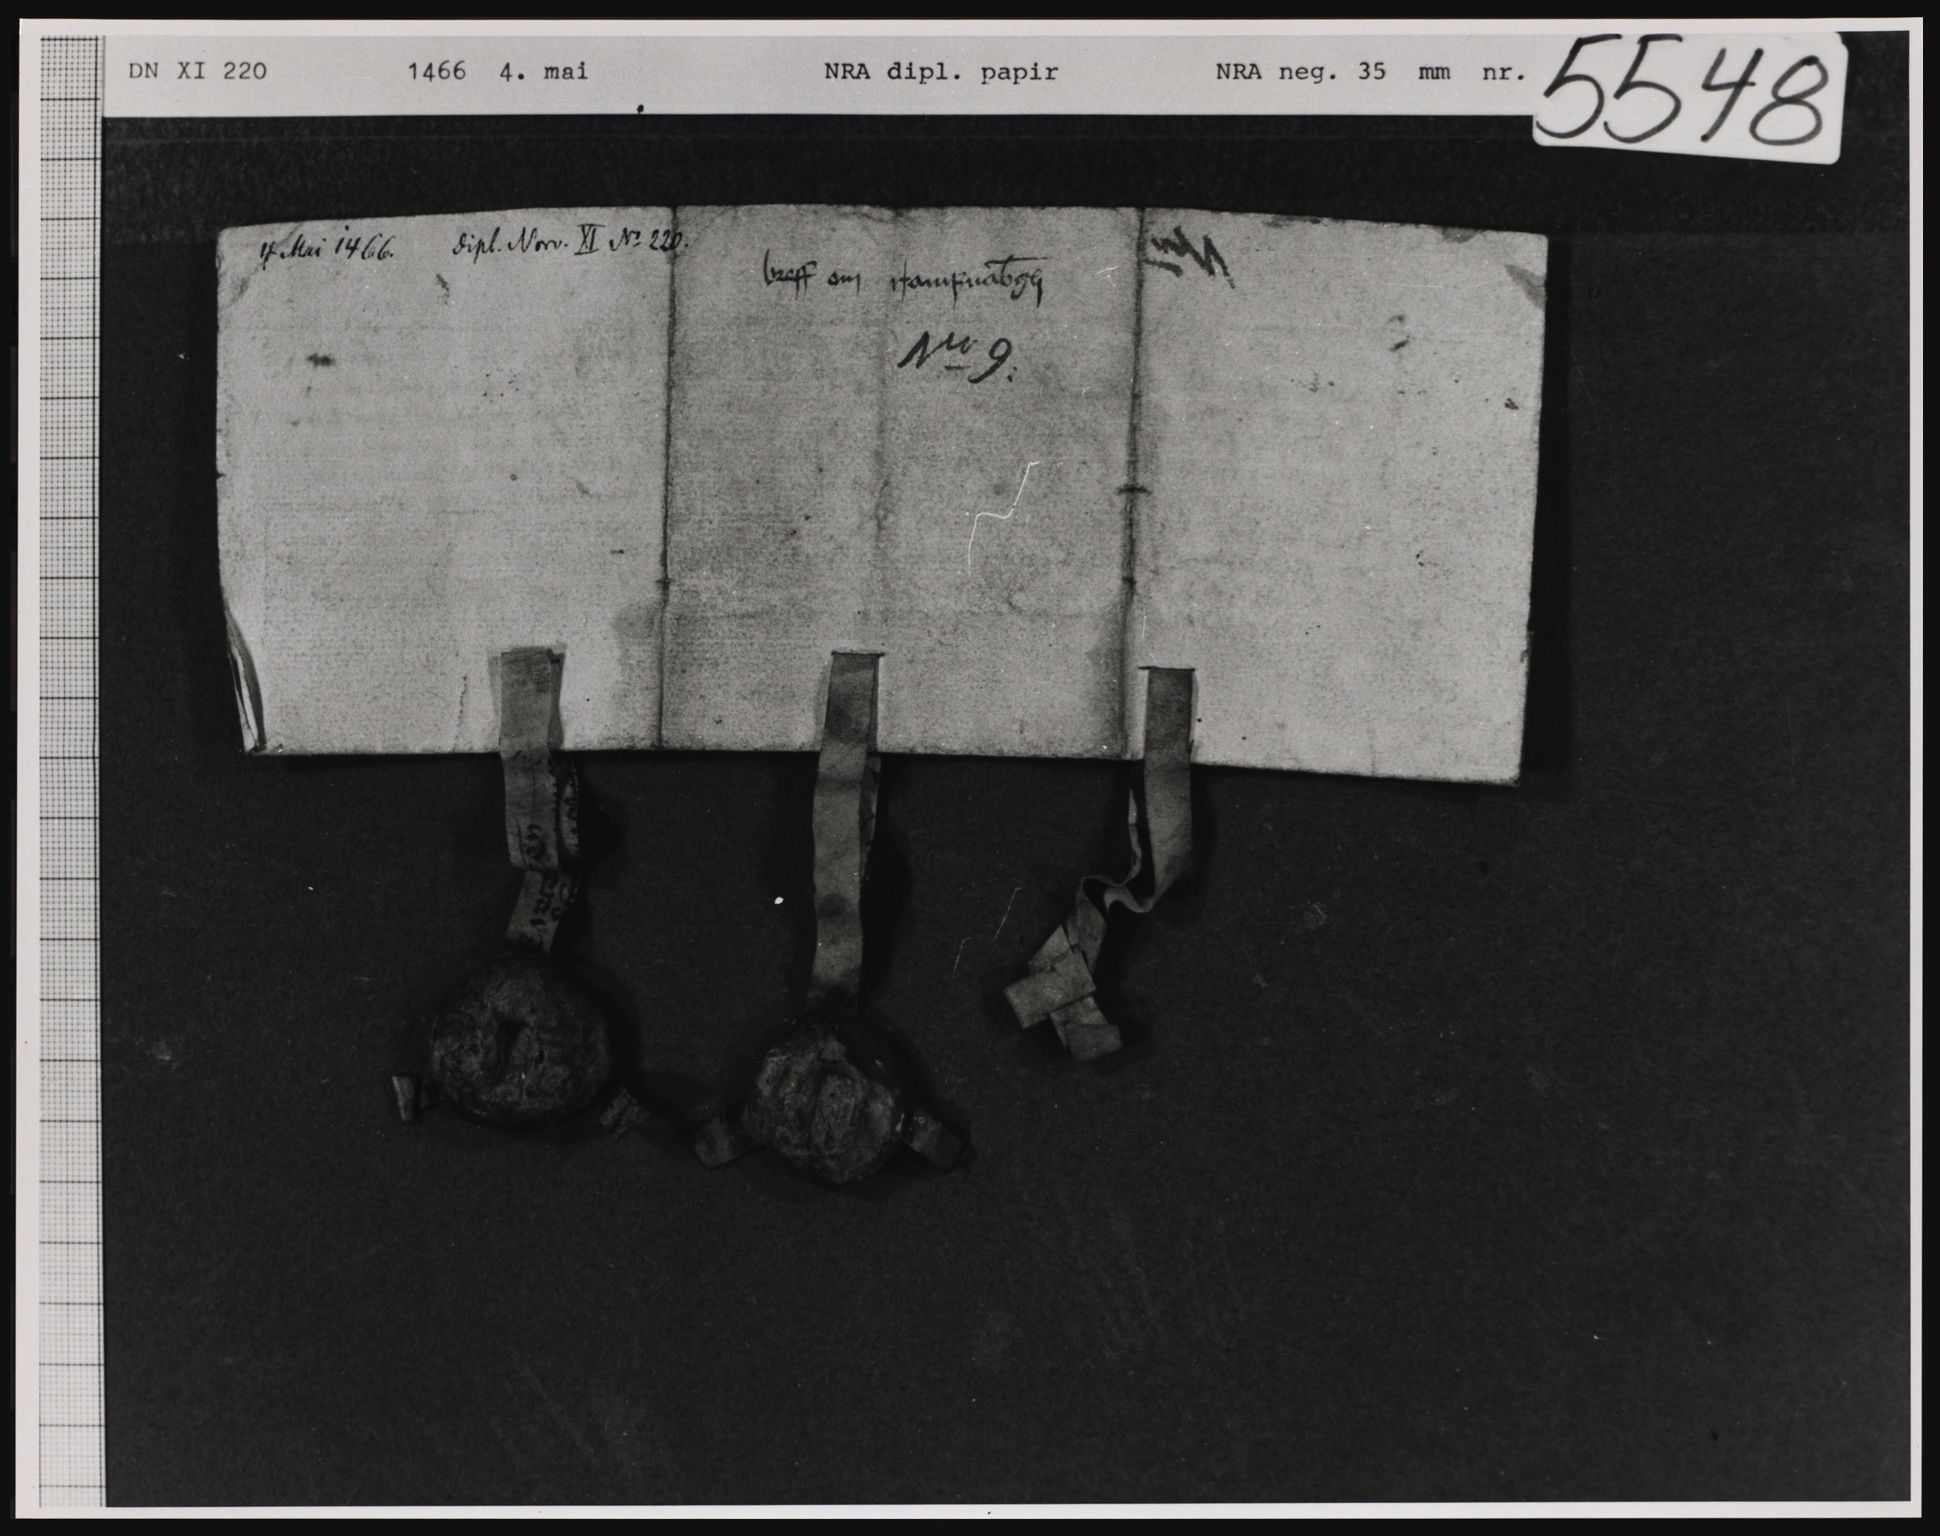 DN XI 220 1466 4. mai NRA dipl. papir NRA neg. 35 mm nr. 5548
4 Mai 1466. Dipl. Norv. XI No 220.
breff om
No 9.